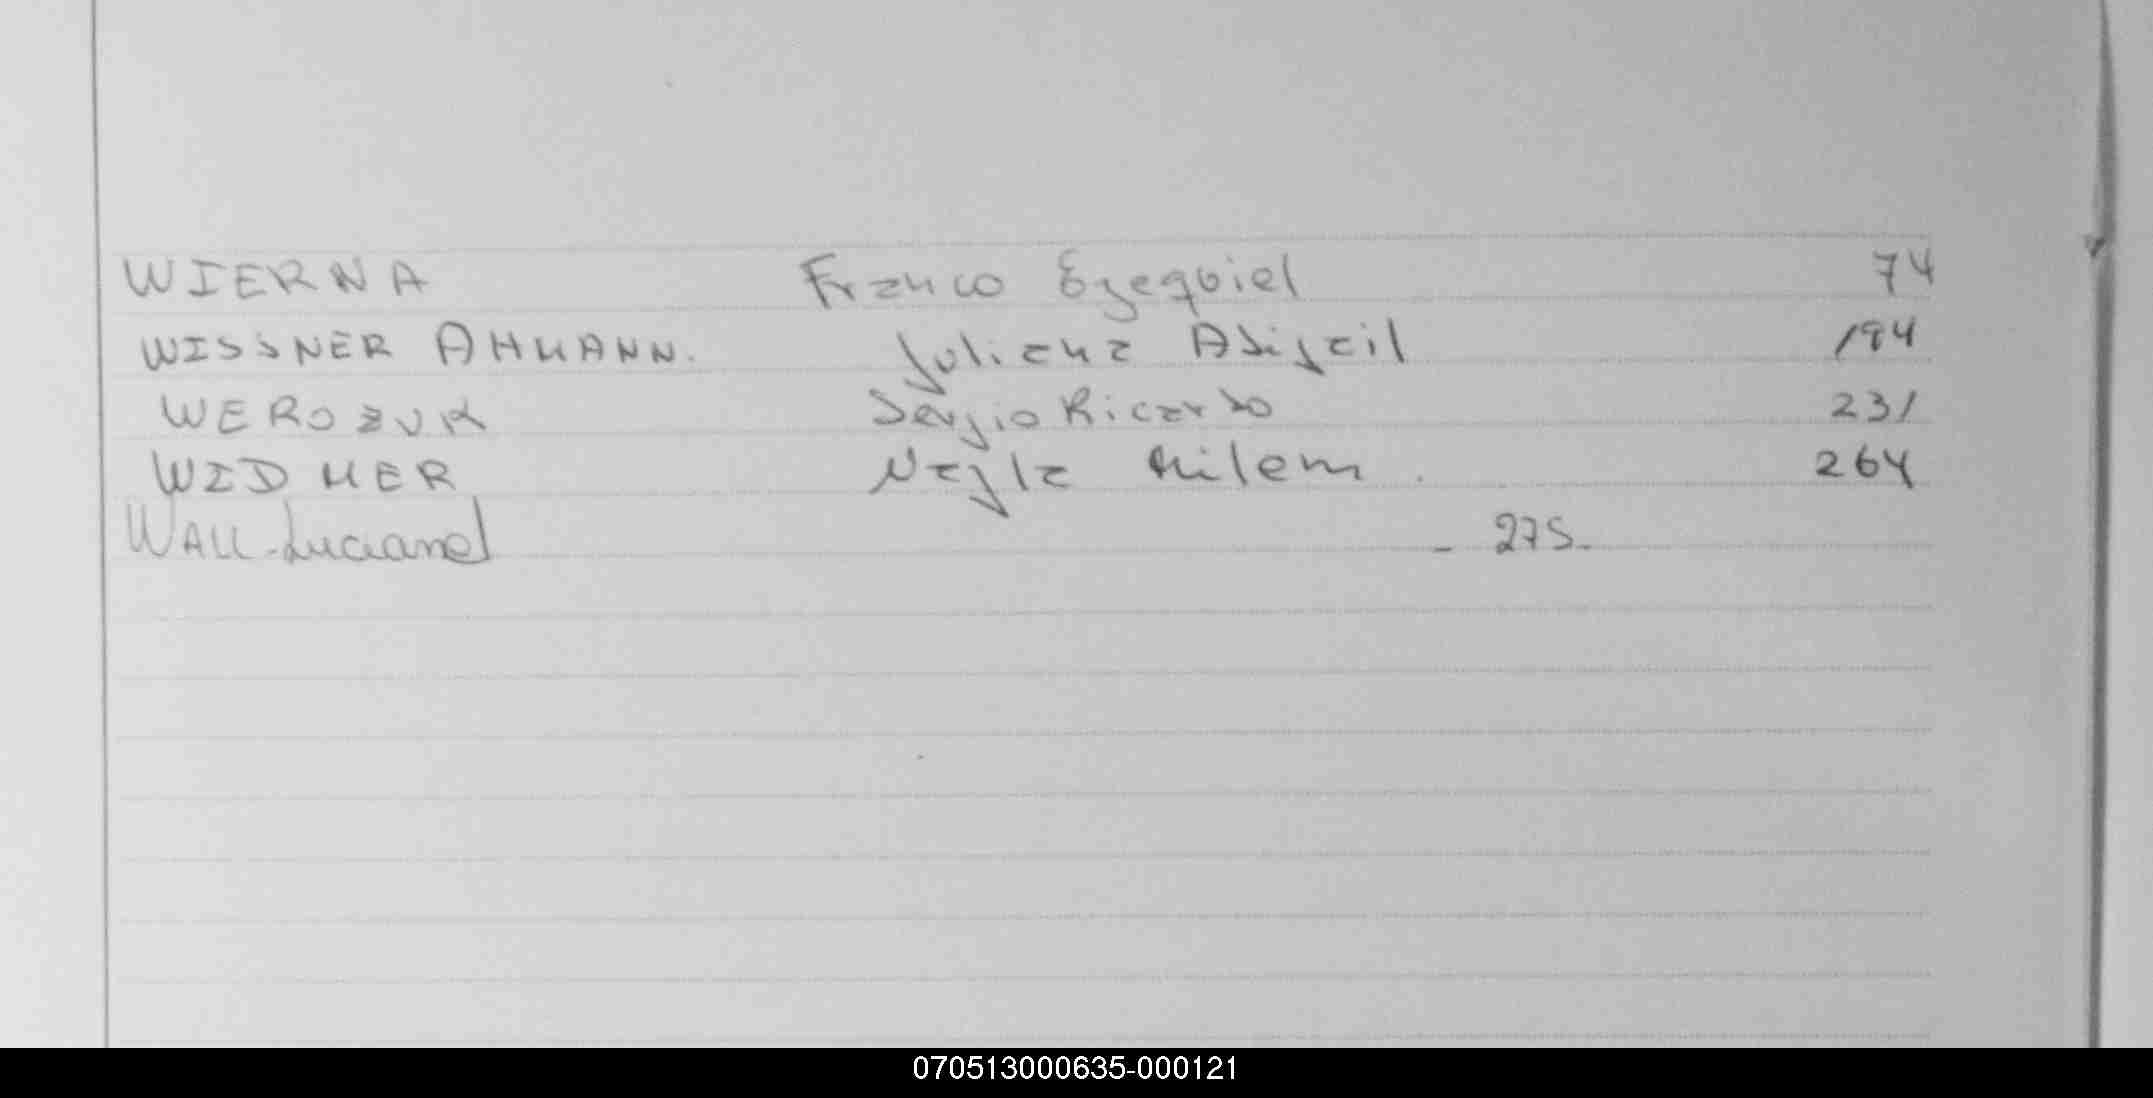 WIERNA Franco Ezequiel 74
WISSNER AHMANN. Juliana Abigail 194
WEROZUK Sergio Ricardo 231
WIDMER Nagla Milem. 264
WALL. Luciano - 275-
070513000635-000121